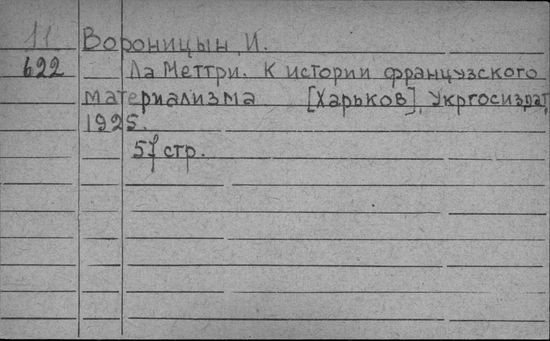 11 Вороницын, И.
622 Ла Меттри. К истории французского
материализма [Харьков], Укргосиздат,
1925.
57 стр.